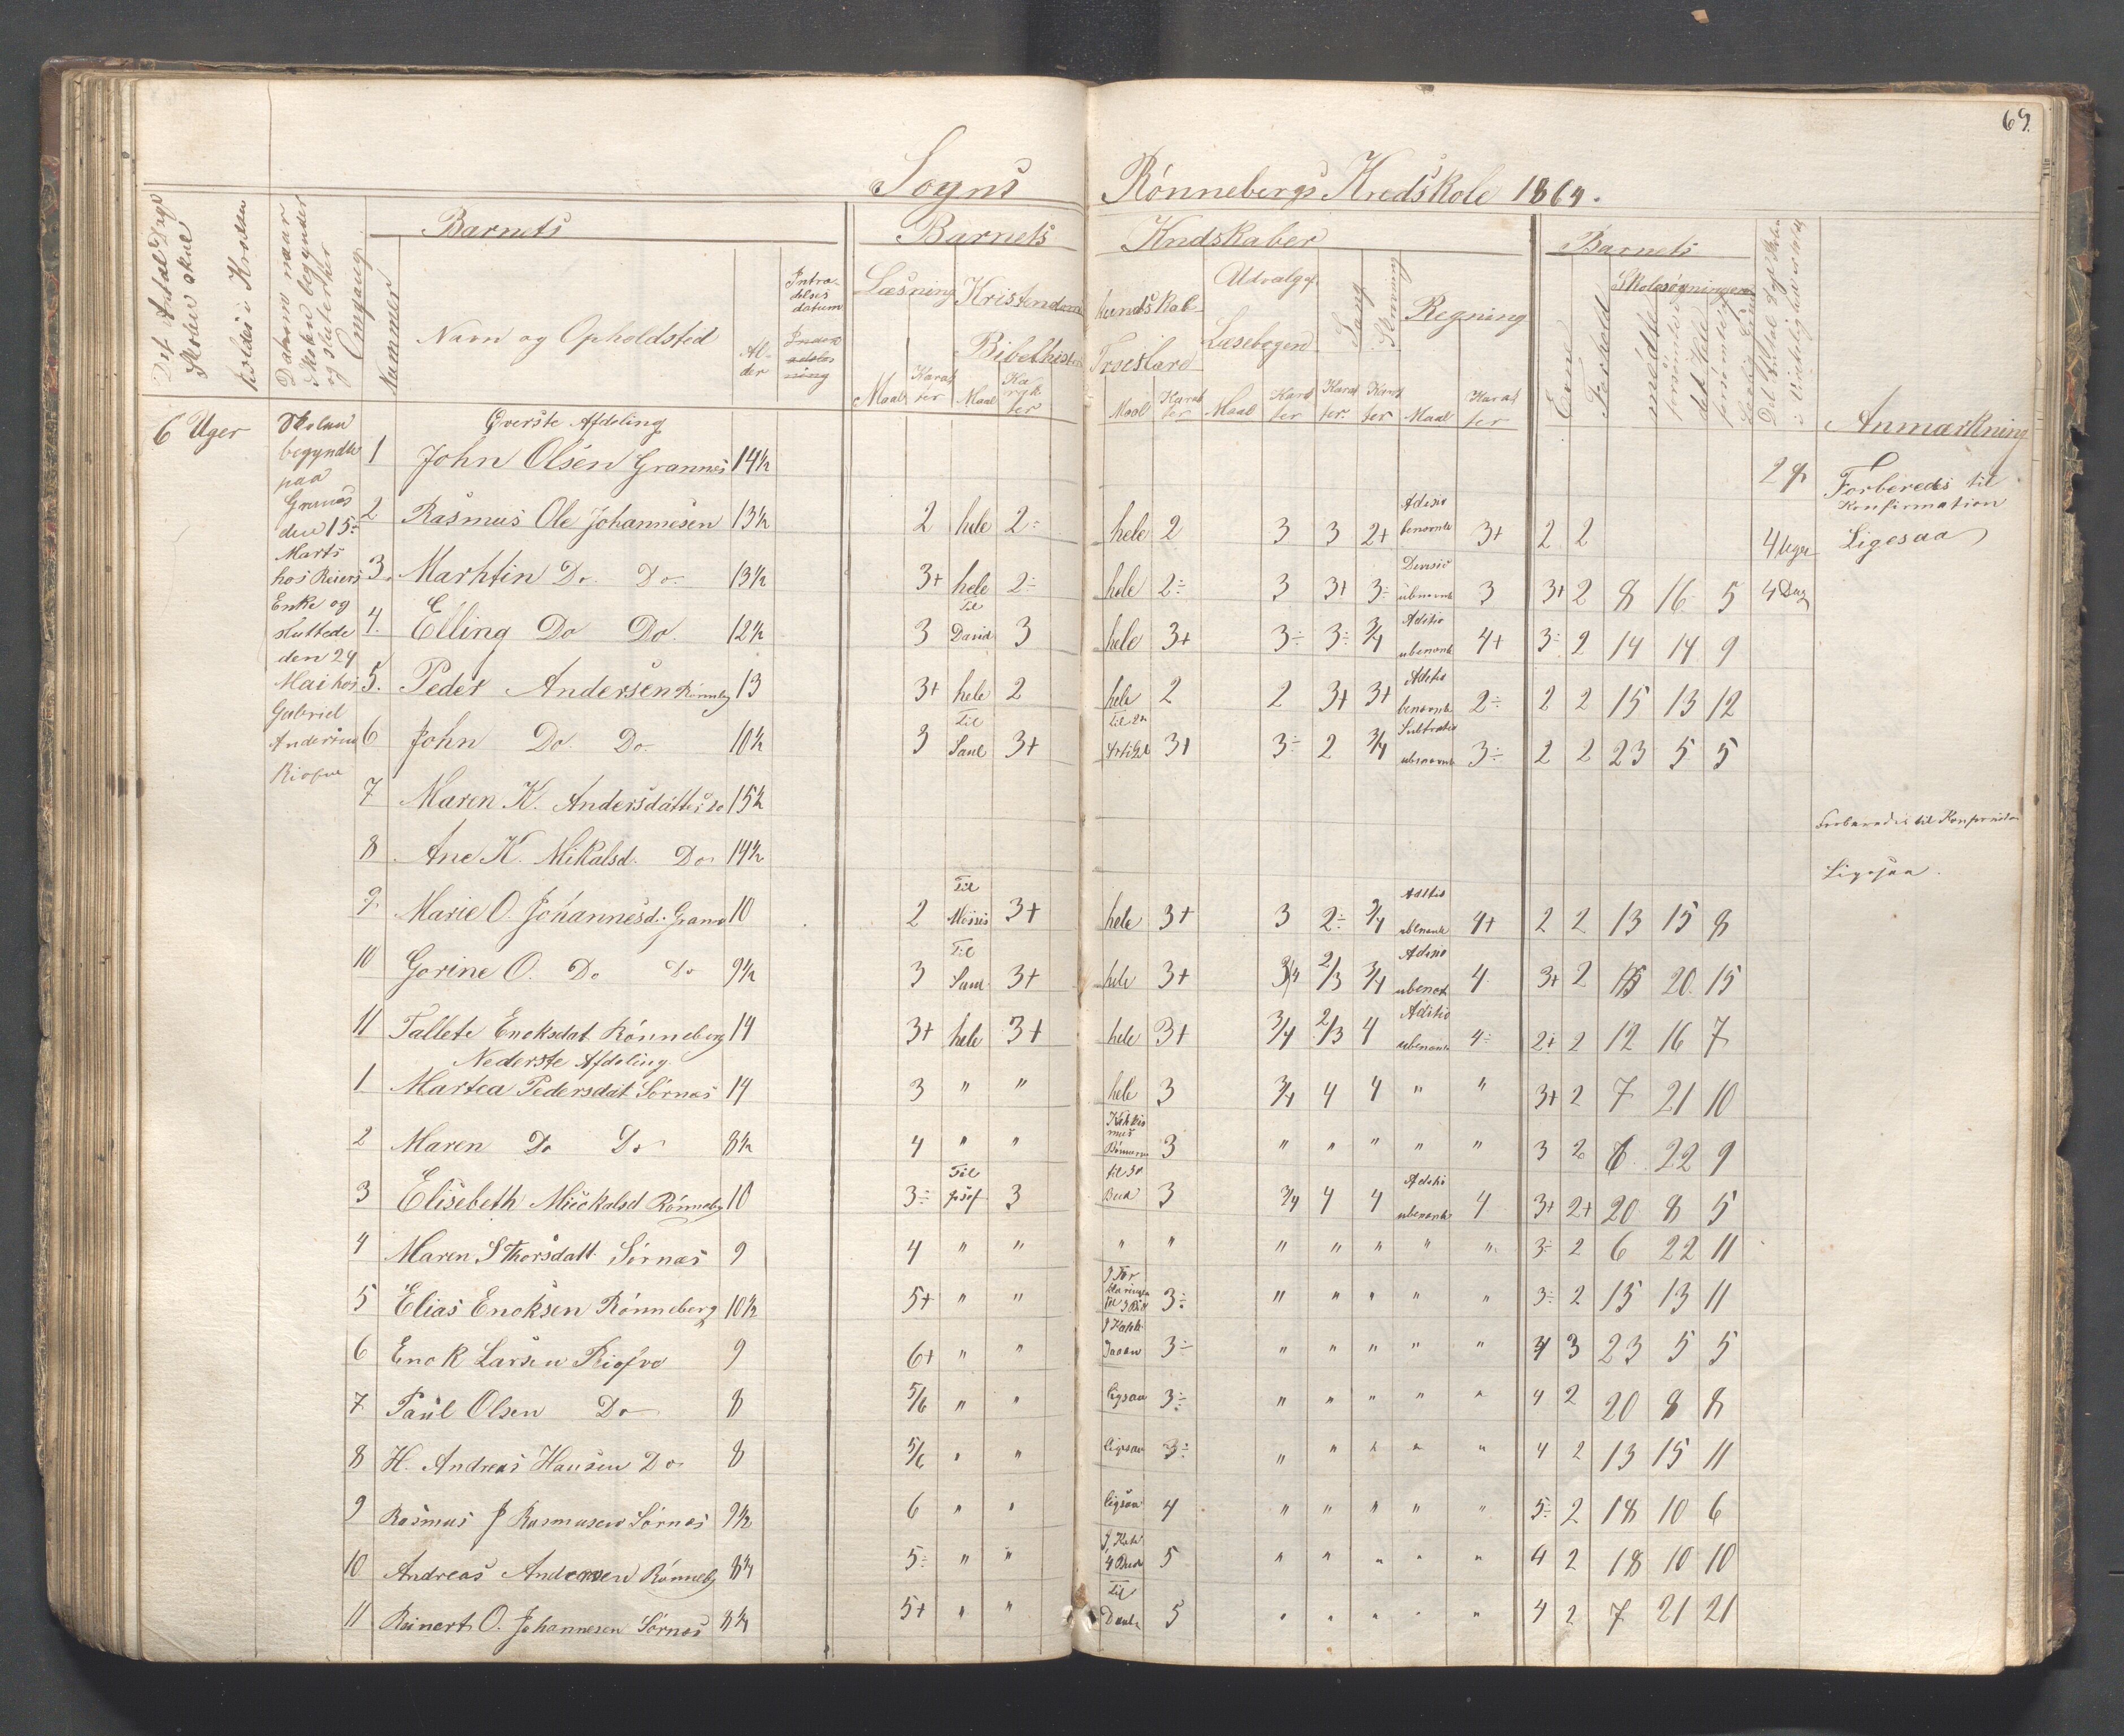 69.
Sogns Rønnebergs Kredskole 1869.
Det Antal Dage Skolen skal holdes i Kredsen
Datum naar Skolen begynder og slutter hver Omgang
Nummer
Barnets
Navn og Opholdsted
Alder
Intrædelses datum
Barnets Kndskaber
Læsning
Maal
Karakter
Kristendoms kundskab
Bibelhistor
Maal
Karakter
Troeslære
Maal
Karakter
Udvalg af Læsebogen
Maal
Karakter
Sang
Karakter
Skrivning
Karakter
Regning
Maal
Karakter
Barnets
Evne
Forhold
Skolesøgningen
mødte
forsømte det Hele
forsømte af lovlig Grund
Det Antal Dage Skolen i Virkelighed er holdt
Anmærkning
6 Uger
Skolen
begyndte
paa
Grannes
den 15÷
Marts
hos Reiers
Enke og
sluttede
den 24
Mai hos
Gabriel
Andersen
Øverste Afdeling
1 John Olsen Grannes 14½ Forberedes til Konfirmation
2 Rasmus Ole Johannesen 13½ 2 hele 2÷ hele 2 3 3 2+ Adisio benævnte 3+ 2 2 4 Uger Ligesaa
3. Marhtin Do. Do. 13½ 3+ hele 2÷ hele 2÷ 3 3+ 3÷ Devisio ubenævnte 3 3+ 2 8 16 5 4 Dag
4. Elling Do Do. 12½ 3 Til David 3 hele 3+ 3÷ 3÷ 3/4 Aditio ubenævnte 4+ 3÷ 2 14 14 9
5. Peder Andersen Rønneberg 13 3+ hele 2 hele 2 2 3+ 3+ Aditio benævnte 2÷ 2 2 15 13 12
6 John Do. Do. 10½ 3 Til Saul 3+ Til 2n Artikel 3+ 3÷ 2 3/4 Subtratio ubenævnte 3÷ 2 2 23 5 5
7 Maren K. Andersdatter do 15½ Forberedes til Konfirmation
8 Ane K. Mikalsd. Do 14½ Ligesaa.
9 Marie O. Johannesd. Grannes 10 2 Til Moises 3+ hele 3+ 3 2÷ 3/4 Aditio ubenævnte 4+ 2 2 13 15 8
10 Gorine O. Do Do 9½ 3 Til Saul 3+ hele 3+ 3/4 2/3 3/4 Adisio ubenævnte 4 3+ 2 15 20 15
11 Tallete Enoksdat Rønneberg 14 3+ hele 3+ hele 3+ 3/4 2/3 4 Aditio ubenævnte 4÷ 2+ 2 12 16 7
Nederste Afdeling
1 Martea Pedersdat Sørnæs 14 3 " " hele 3 3/4 4 4 " " 3+ 2 7 21 10
2 Maren Do Do 8½ 4 " " Katekismus Bønnerne 3 " " " " " 3 2 6 22 9
3 Elisebeth Mickalsd Rønneberg 10 3÷ Til Josef 3 til 5te Bud 3 3/4 4 4 Aditio ubenævnte 4 3+ 2+ 20 8 5
4 Maren S Thorsdatt. Sørnæs 9 4 " " " " " " " " " 3÷ 2 6 22 11
5 Elias Enoksen Rønneberg 10½ 5+ " " I Forklaringen til 3 Bud 3÷ " " " " " 3÷ 2 15 13 11
6 Enok Larsen Riofve 9 6+ " " I Katek. 3÷ " " " " " 4 3 23 5 5
7 Paul Olsen Do 8 5/6 " " ligesaa 3÷ " " " " " 4 2 20 8 8
8 H. Andreas Hansen Do 8 5/6 " " ligesaa 3÷ " " " " " 4 2 13 15 11
9 Rasmus J Rasmusen Sørnæs 9½ 6 " " ligesaa 4 " " " " " 5÷ 2 18 10 6
10 Andreas Andersen Rønneberg 8¾ 5÷ " " I Kate 4 Bud 5 " " " " " 4 2 18 10 10
11 Reinert O. Johannesen Sørnæs 8¾ 5+ " " Til 5 " " " " " 4 2 7 21 21